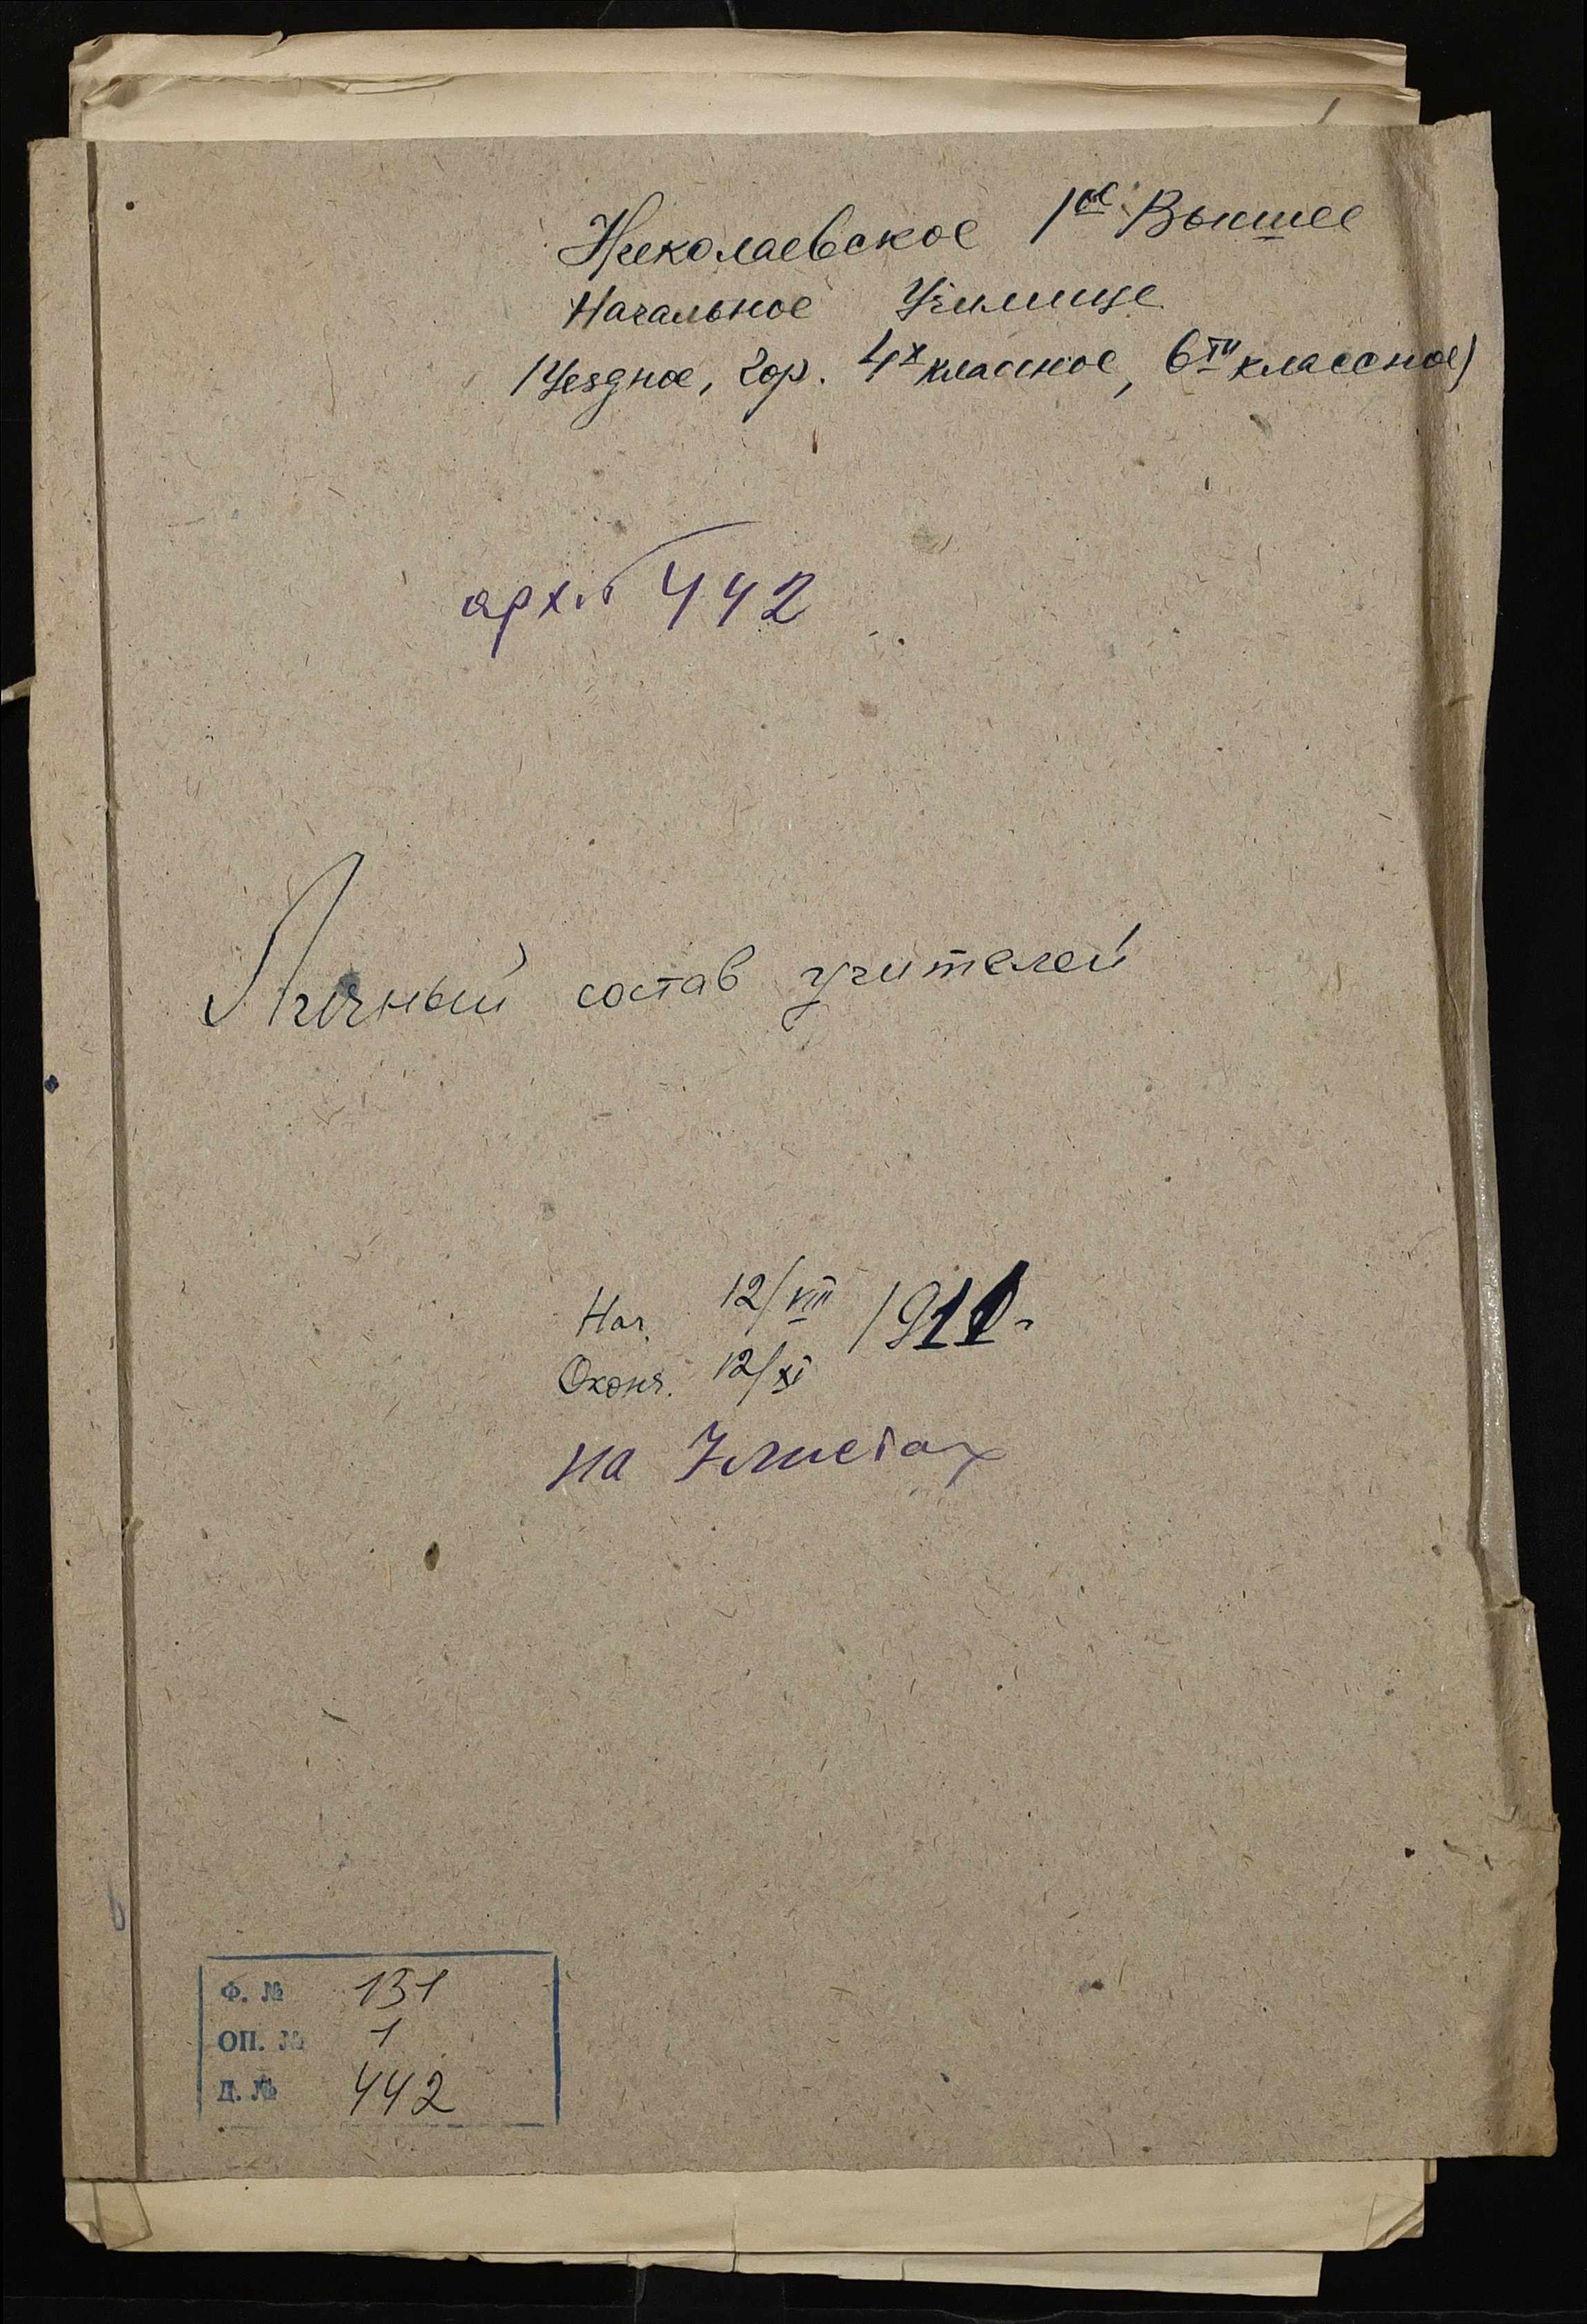 Николаевское 1ое Высшее
Начальное Училище
(Уездное, гор. 4х классное, 6ти классное)
арх. № 442
Личный состав учителей
Нач. 12/VIII 1911 г
Оконч. 12/XI
на 7 листах
Ф. № 131
ОП. № 1
Д. № 442